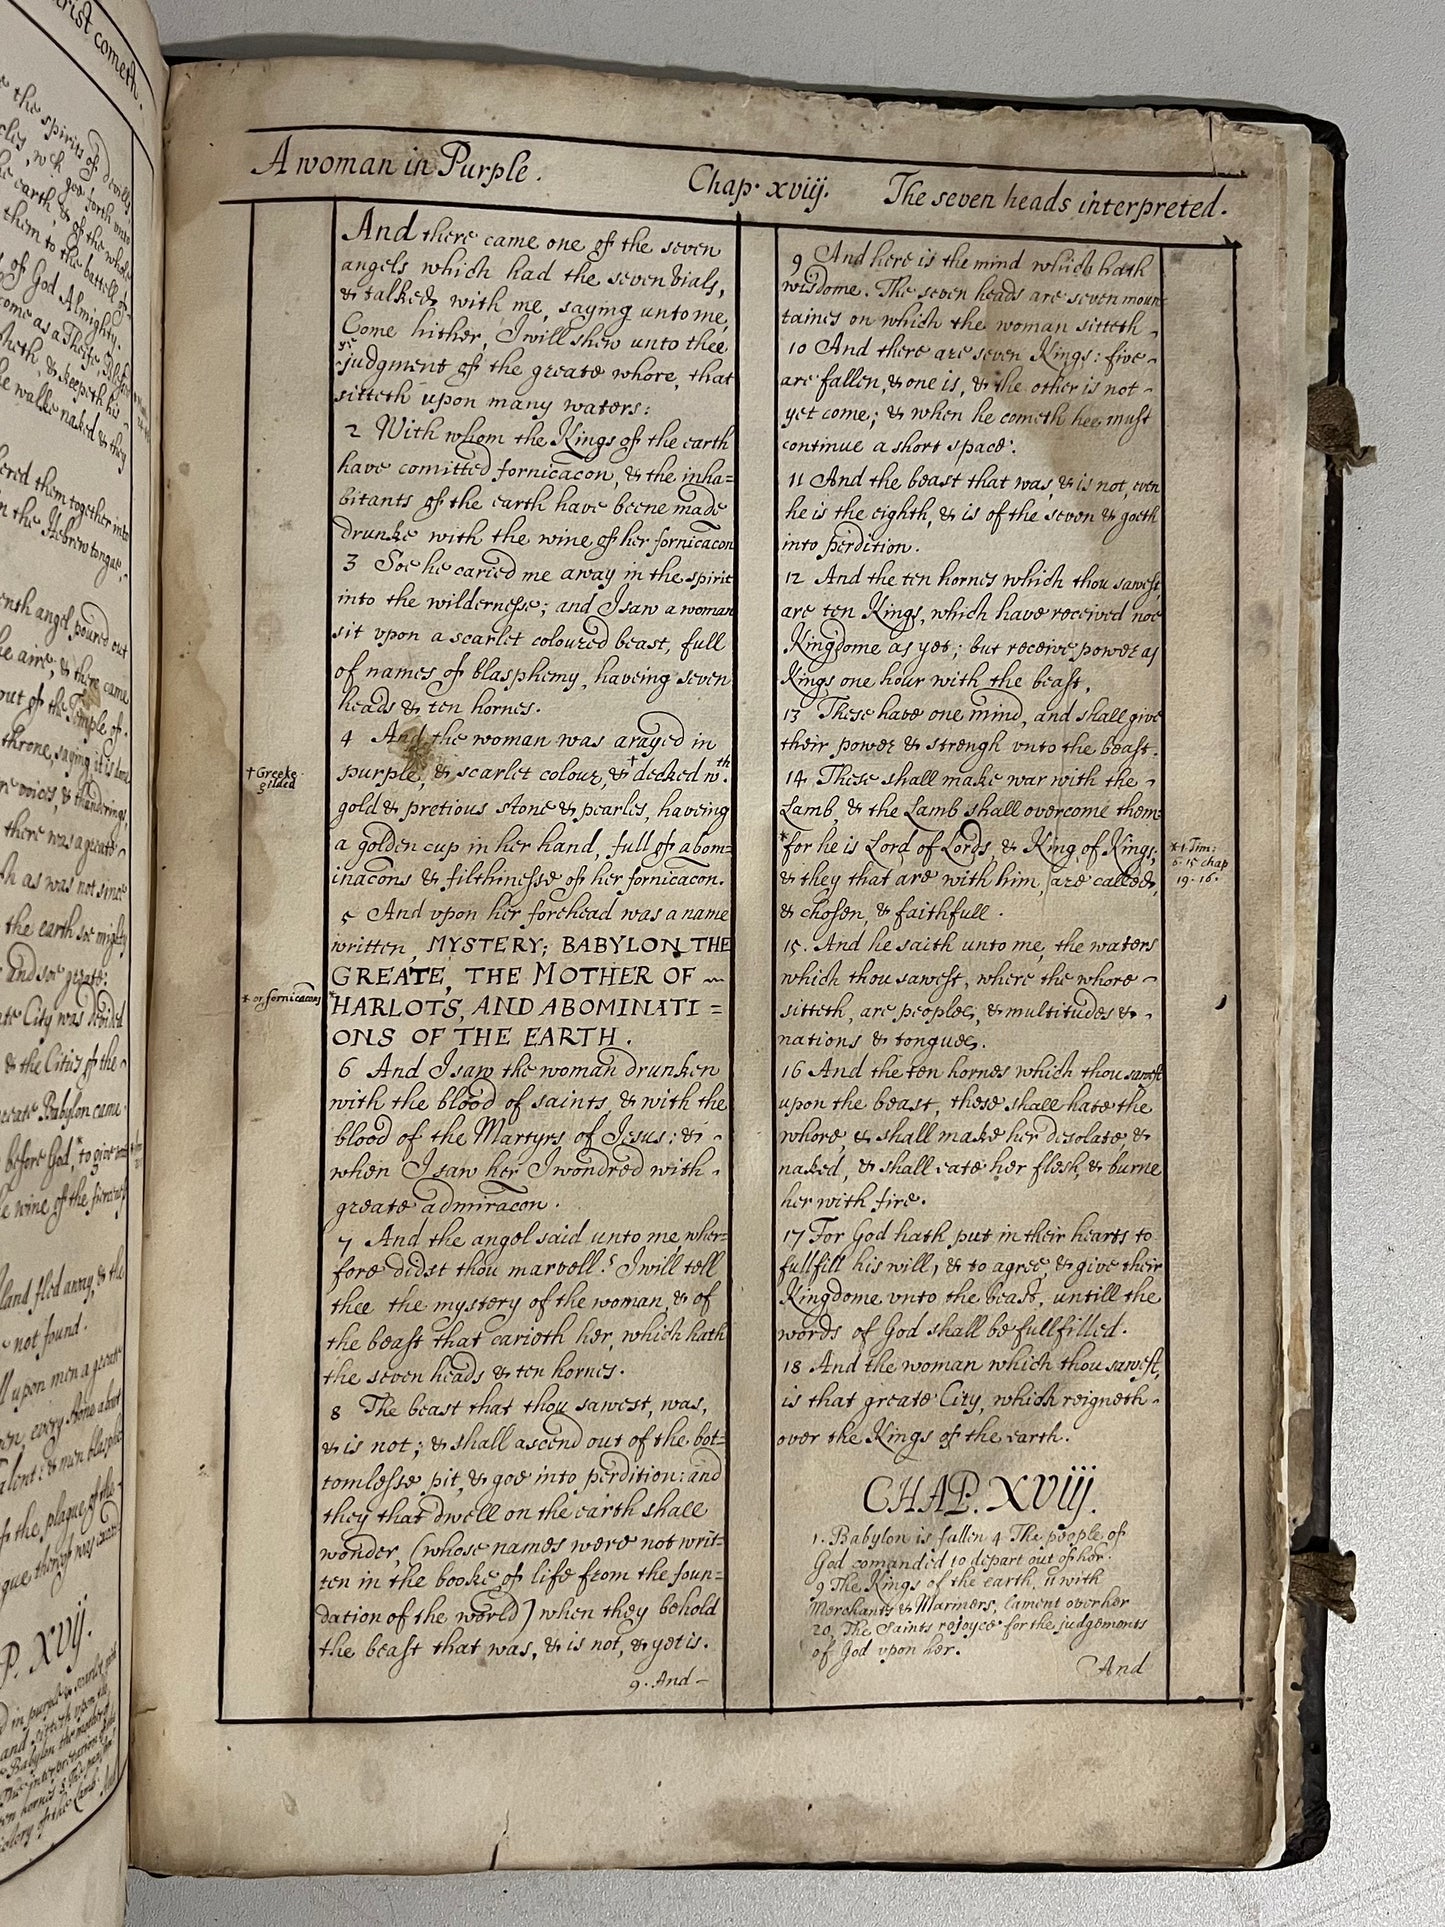 A woman in Purple.
Chap. xviij.
The seven heads interpreted.
And there came one of the seven
angels which had the seven vials,
& talked with me, saying unto me,
Come hither, I will shew unto thee
ye judgment of the greate whore, that
sitteth upon many waters:
2 With whom the Kings of the earth
have comitted fornicacon, & the inha=
bitants of the earth have beene made
drunke with the wine of her fornicacon
3 Soe he caried me away in the spirit
into the wildernesse; and I saw a woman
sit vpon a scarlet coloured beast, full
of names of blasphemy, haveing seven
heads & ten hornes.
4 And the woman was arayed in
purple, & scarlet colour, & † decked wth.
gold & pretious stone & pearles, haveing
a golden cup in her hand, full of abom=
inacons & filthinesse of her fornicacon.
5 And vpon her forehead was a name
written, MYSTERY; BABYLON THE
GREATE, THE MOTHER OF ~
*HARLOTS, AND ABOMINATI=
ONS OF THE EARTH.
6 And I saw the woman drunken
with the blood of saints & with the
blood of the Martyrs of Jesus: & -
when I saw her I wondred with -
greate admiracon.
7 And the angel said unto me, wher=
fore didst thou marvell? I will tell
thee the mystery of the woman, & of
the beast that carieth her, which hath
the seven heads & ten hornes.
8 The beast that thou sawest, was,
& is not; & shall ascend out of the bot=
tomlesse pit, & goe into perdition: and
they that dwell on the earth shall
wonder, (whose names were not writ=
ten in the booke of life from the foun=
dation of the world) when they behold
the beast that was, & is not, & yet is.
9. And -
† Greeke
gilded
* or, fornicacons
9 And here is the mind which hath
wisdome. The seven heads are seven moun
taines on which the woman sitteth -
10 And there are seven Kings: five -
are fallen, & one is, & the other is not -
yet come; & when he cometh hee must
continue a short space.
11 And the beast that was, & is not, even
he is the eighth, & is of the seven & goeth
into perdition.
12 And the ten hornes which thou sawest,
are ten Kings, which have received noe
Kingdome as yet; but receive power as
Kings one hour with the beast.
13 These have one mind, and shall give
their power & strengh vnto the beast.
14. These shall make war with the -
Lamb, & the Lamb shall overcome them
*for he is Lord of Lords, & King of Kings;
& they that are with him, are called,
& chosen, & faithfull.
15. And he saith unto me, the waters
which thou sawest, where the whore -
sitteth, are peoples, & multitudes & -
nations & tongues.
16 And the ten hornes which thou sawest
upon the beast, these shall hate the
whore, & shall make her desolate, &
naked, & shall eate her flesh, & burne
her with fire.
17 For God hath put in their hearts to
fullfill his will, & to agree & give their
Kingdome vnto the beast, untill the
words of God shall be fullfilled.
18 And the woman which thou sawest,
is that greate City, which reigneth -
over the Kings of the earth.
CHAP. XViij.
1. Babylon is fallen 4 The people of
God comanded to depart out of her.
9 The Kings of the earth, 11 with
Merchants & Marmers, lament over her
20, The Saints rejoyce for the judgements
of God upon her.
And
* 1. Tim:
6. 15 chap
19. 16.